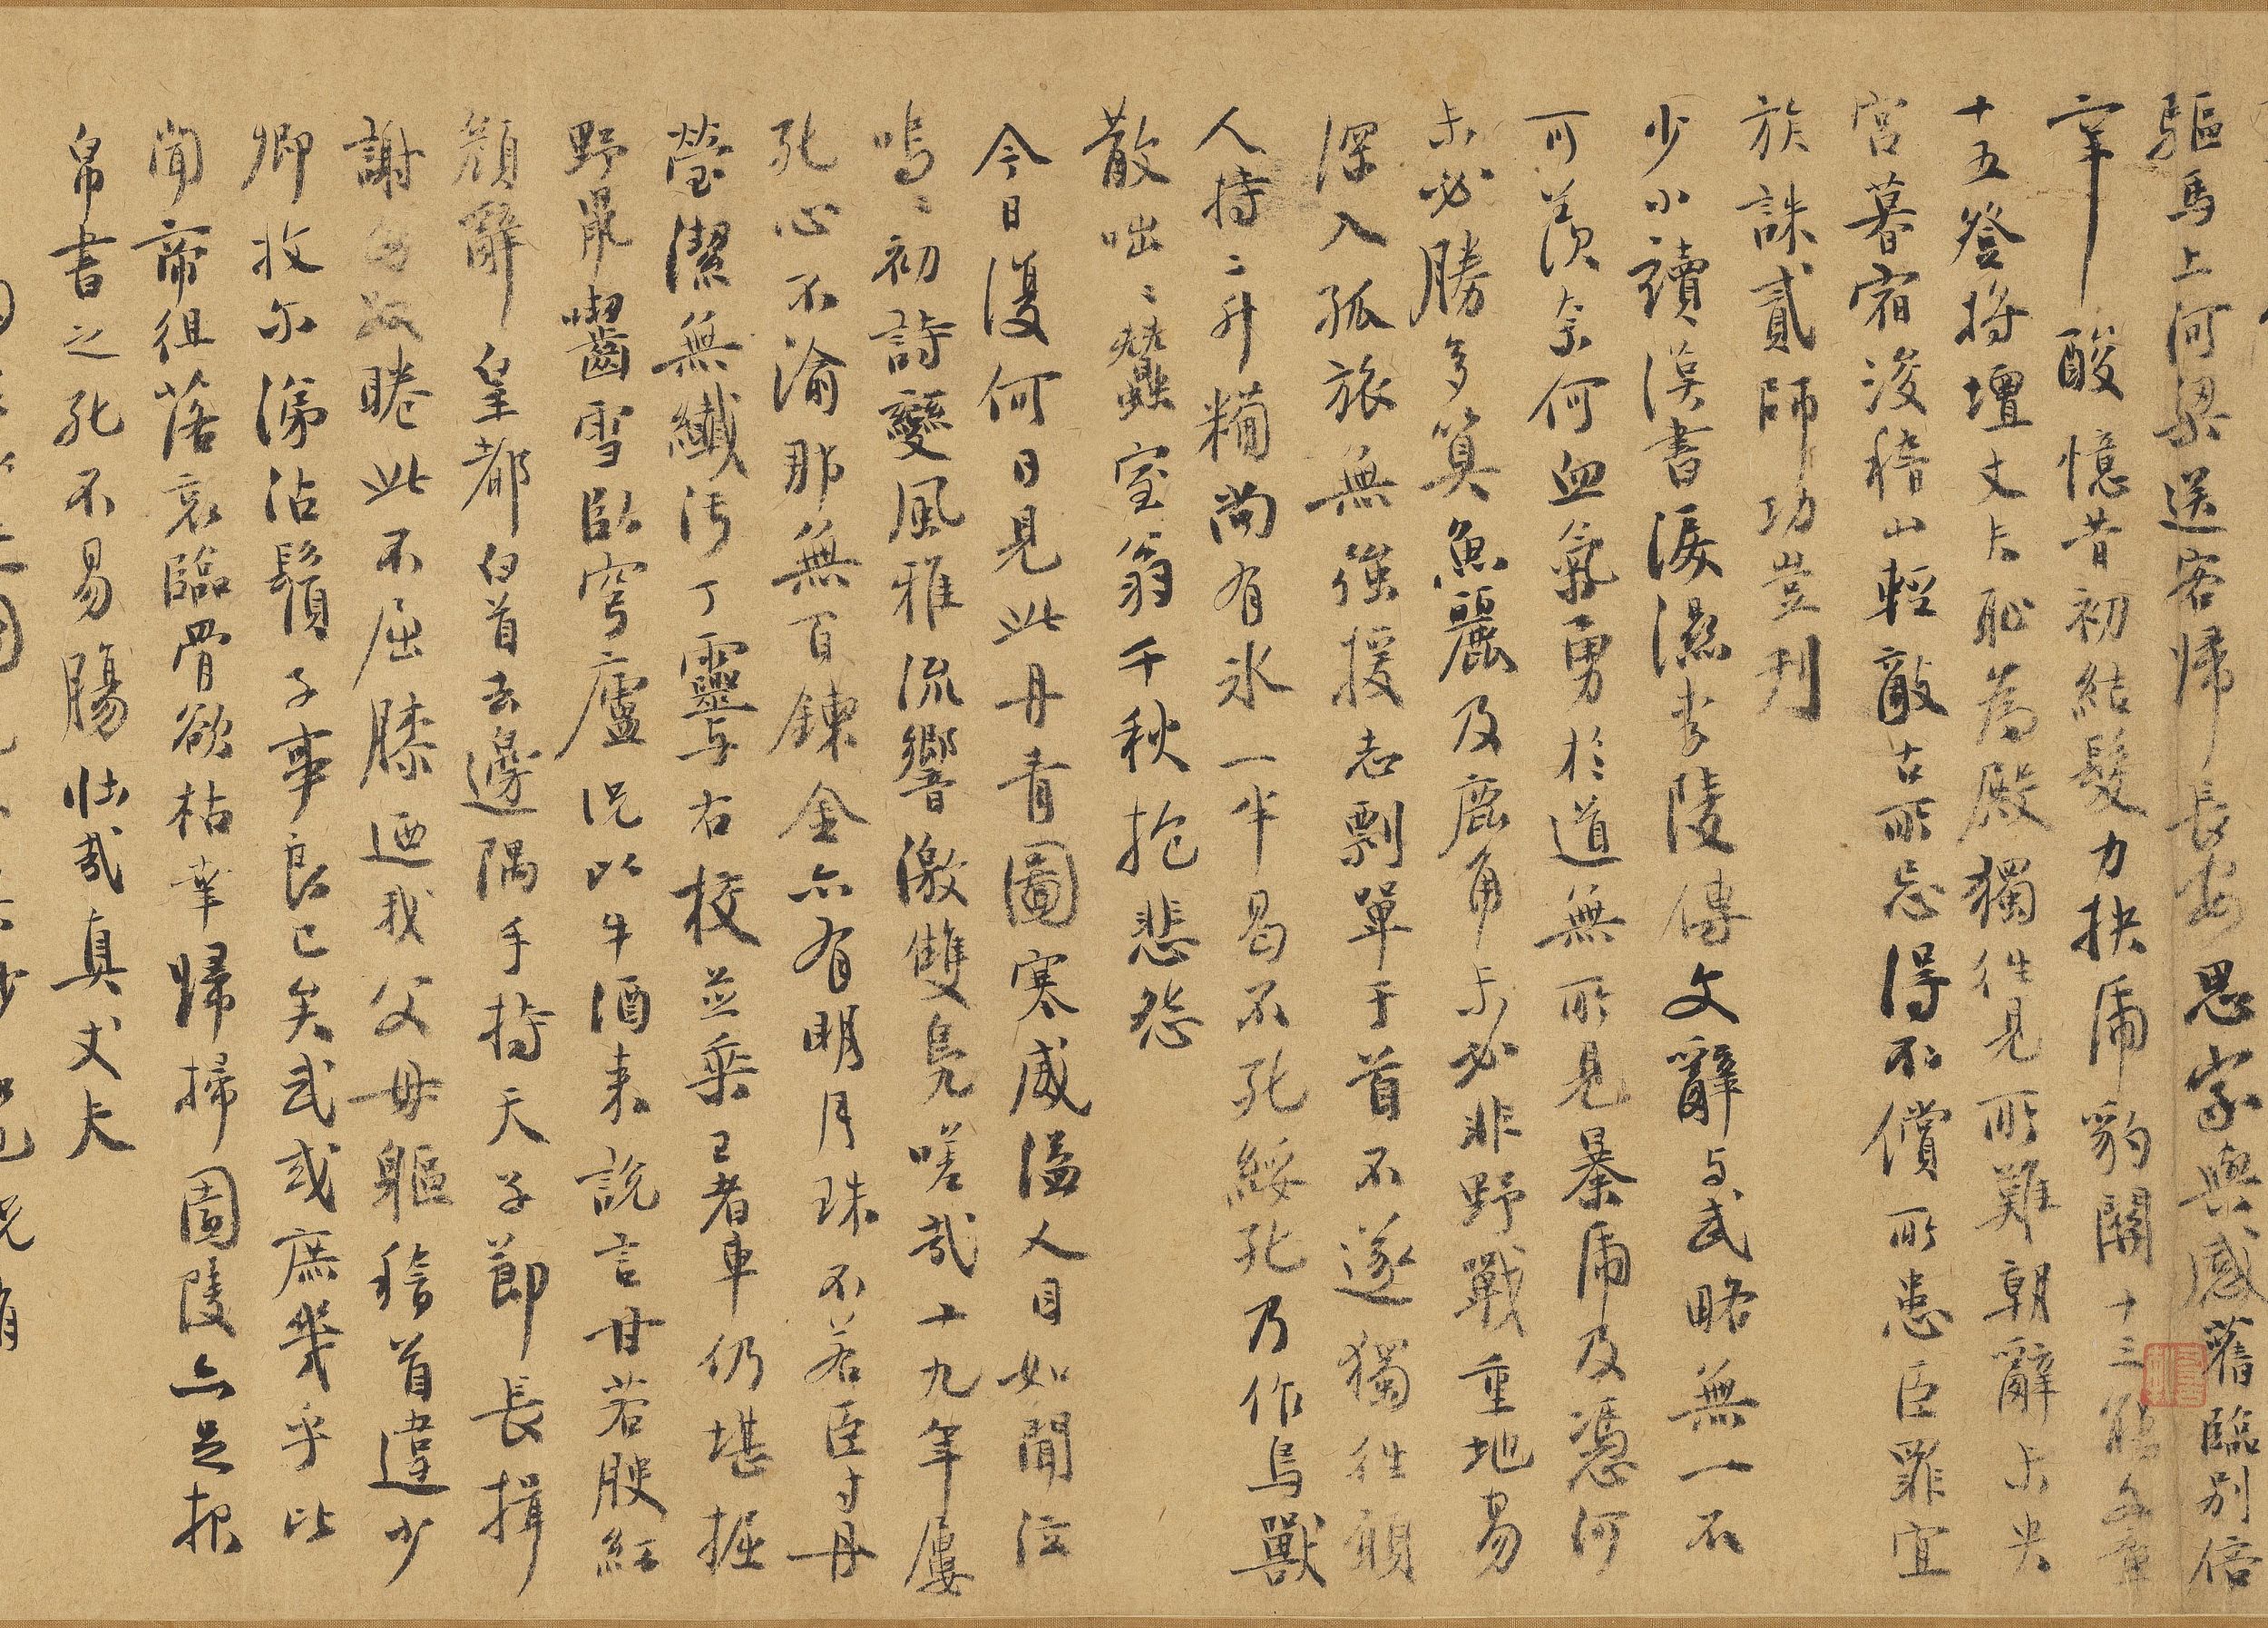 驅馬上河梁送客歸長安思家與感舊臨別倍
辛酸憶昔初結髮力抉虎豹關十三能
十五登將壇丈夫恥為殿獨往見所難朝辭未央
宮暮宿浚稽山輕敵古所忌得不償所患臣罪宜
族誅貳師功豈刊
少小讀漢書淚濕李陵傳文辭与武略無一不
可羨奈何血氣勇於道無所見暴虎及馮河
未必勝多算魚麗及鹿角未必非野戰重地易
深入孤旅無強援志剽單于首不遂獨往願
人持二升糒尚有氷一半曷不死綏死乃作鳥獸
散咄〻蠶室翁千秋抱悲怨
今日復何日見此丹青圖寒威溢人目如聞泣
嗚〻初詩變風雅流響激雙鳧嗟哉十九年屢
死心不渝那無百鍊金亦有明月珠不若臣寸丹
瑩潔無纖污丁靈与右校並乘已者車仍堪掘
野鼠囓齒雪臥穹廬況以牛酒来說言甘若腴紅
顏辭皇都白首去邊隅手持天子節長揖
謝匈奴睠此不屈膝迺我父母軀稽首違少
卿收尔涕沾鬚子事良已矣武或庶幾乎比
聞帝徂落哀臨骨欲枯幸歸掃園陵亦足報
帛書之死不易腸壯哉真丈夫